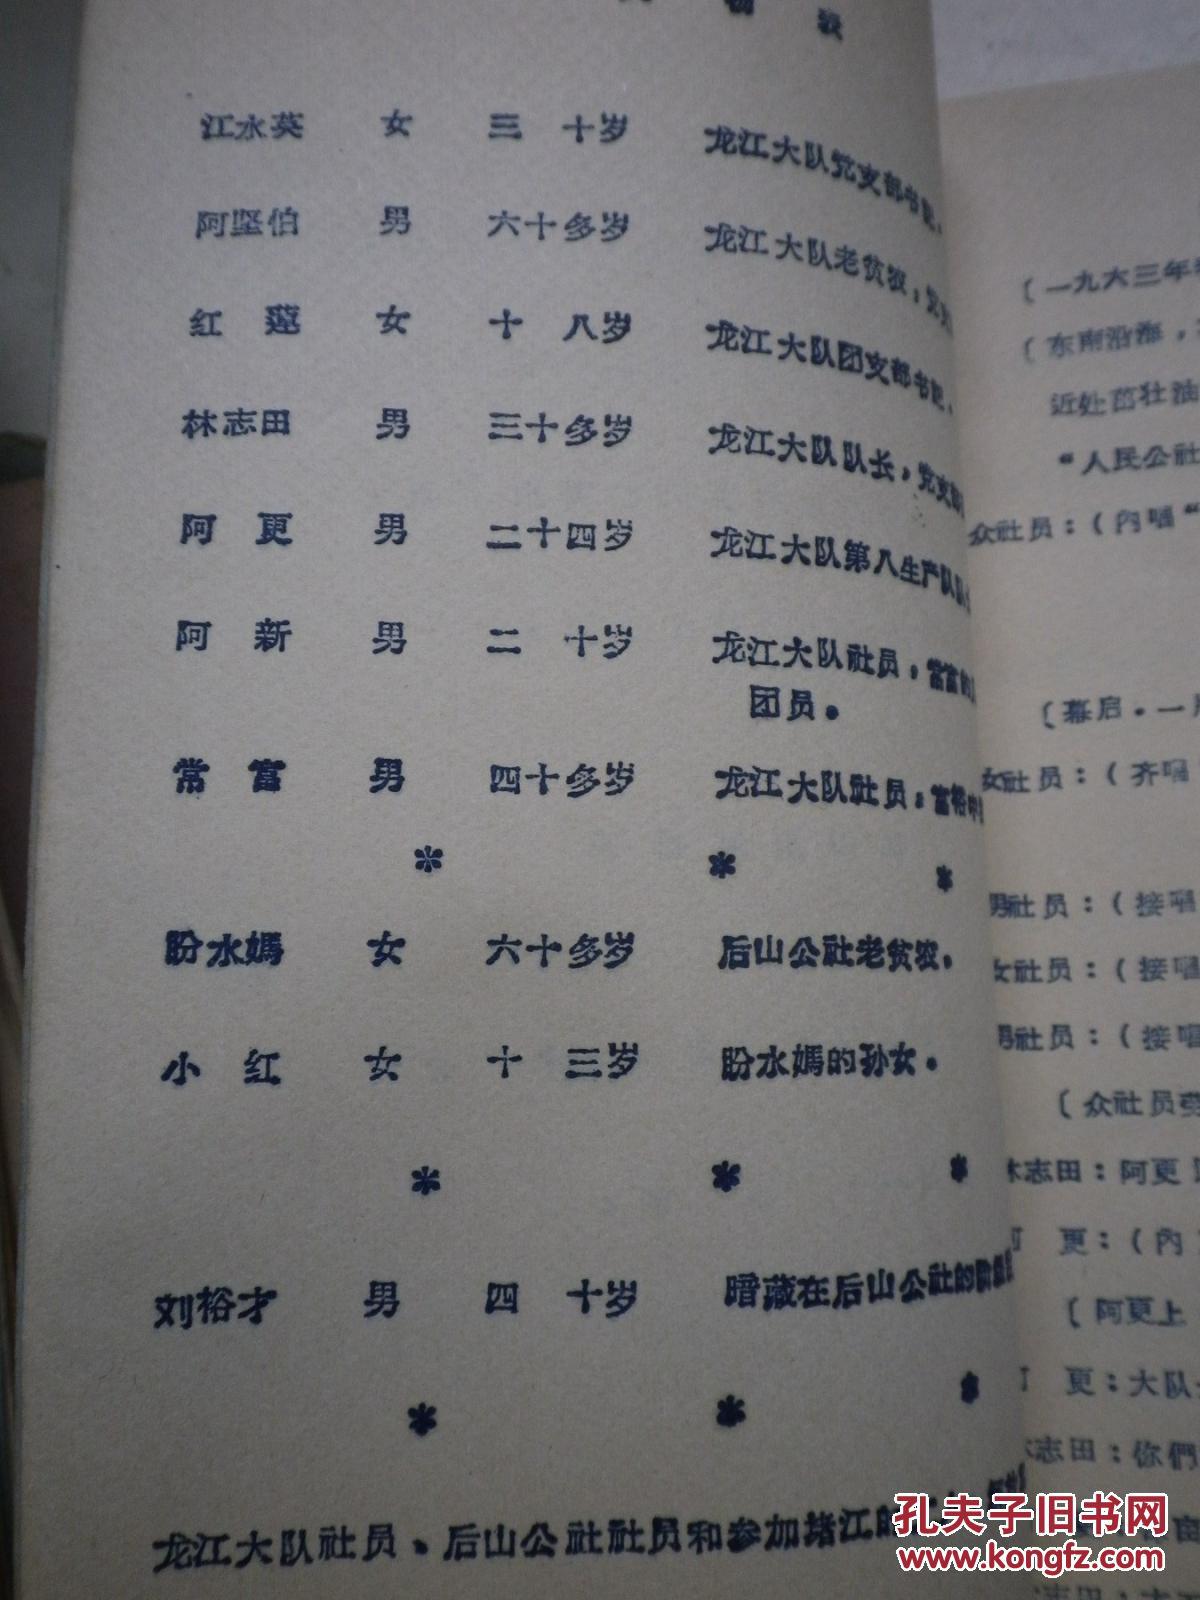 物 表
江水英 女 三 十岁 龙江大队党支部书记.
阿坚伯 男 六十多岁 龙江大队老贫农，党
红 莲 女 十 八岁 龙江大队团支部书记.
林志田 男 三十多岁 龙江大队队长，党支部
阿 更 男 二十四岁 龙江大队第八生产队队
阿 新 男 二 十岁 龙江大队社员，常富的
团员。
常 富 男 四十多岁 龙江大队社员，富裕中
* * *
盼水媽 女 六十多岁 后山公社老贫农.
小 红 女 十 三岁 盼水媽的孙女.
* * *
刘裕才 男 四 十岁 暗藏在后山公社的阶级
* * *
龙江大队社员、后山公社社员和参加堵江的
〔一九六三年
〔东南沿海，
近处茁壮油
“人民公社
众社员：（内唱“
〔幕启.一
女社员：（齐唱
男社员：（接唱
女社员：（接唱
男社员：（接唱
〔众社员
林志田：阿更
更：（内
〔阿更上
更：大队
志田：你們
孔夫子旧书网
www.kongfz.com